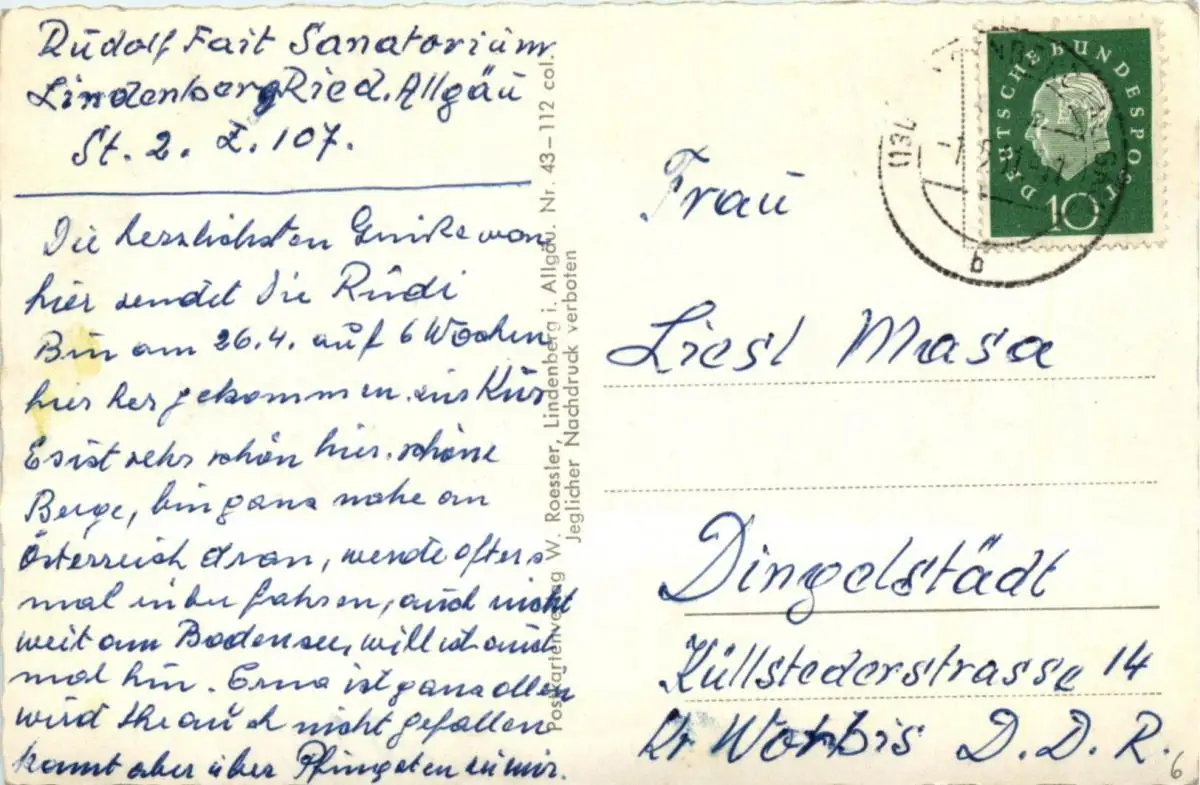 Rudolf Fait Sanatorium
Lindenberg Ried. Allgäu
St. 2. Z. 107.
Die herzlichsten Grüße von
hier sendet Die Rudi
Bin am 26.4. auf 6 Wochen
hier her gekommen. zur Kur
Es ist sehr schön hier. schöne
Berge, bin ganz nahe an
Österreich dran, werde ofters
mal rüber fahren, auch nicht
weit am Bodensee, will ich auch
mal hin. Erna ist ganz allein
wird ihr auch nicht gefallen
kommt aber über Pfingsten zu mir.
Postkartenverlag W. Roessler, Lindenberg i. Allgäu. Nr. 43-112 col.
Jeglicher Nachdruck verboten
DEUTSCHE BUNDESPOST
10
(13
b
Frau
Liesl Masa
Dingelstädt
Küllstederstrasse 14
Kr Worbis D.D.R.
6